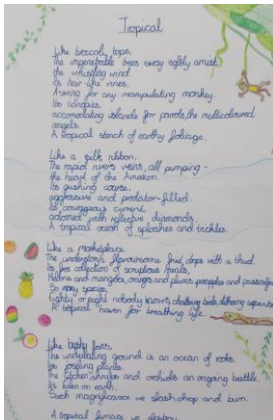 Tropical
Like broccoli tops,
The impenetrable trees sway softly amidst
the whistling wind.
Its hair-like vines,
Aswing for any manipulating monkey.
Its canopies,
accomodating islands for parrots, the multicoloured
angels.
A tropical stench of earthy foliage.
Like a silk ribbon.
The rapid rivers veins, all pumping -
the heart of the Amazon.
Its gushing course,
aggressive and predator-filled.
Its courageous current,
adorned with reflective diamonds.
A tropical ocean of splashes and trickles.
Like a marketplace.
The understory's flavoursome fruit drops with a thud.
Its collection of scruptious treats,
Melons and mangoes, oranges and plums, pineapples and passionfruit
So many species,
Eighty or eight nobody knows,
A tropical haven for breathing life.
Like
The undulating ground is an ocean of roots
Its plants,
The and orchids an ongoing battle.
Its on earth,
Such magnificence we slash, chop and burn.
A tropical furnace we